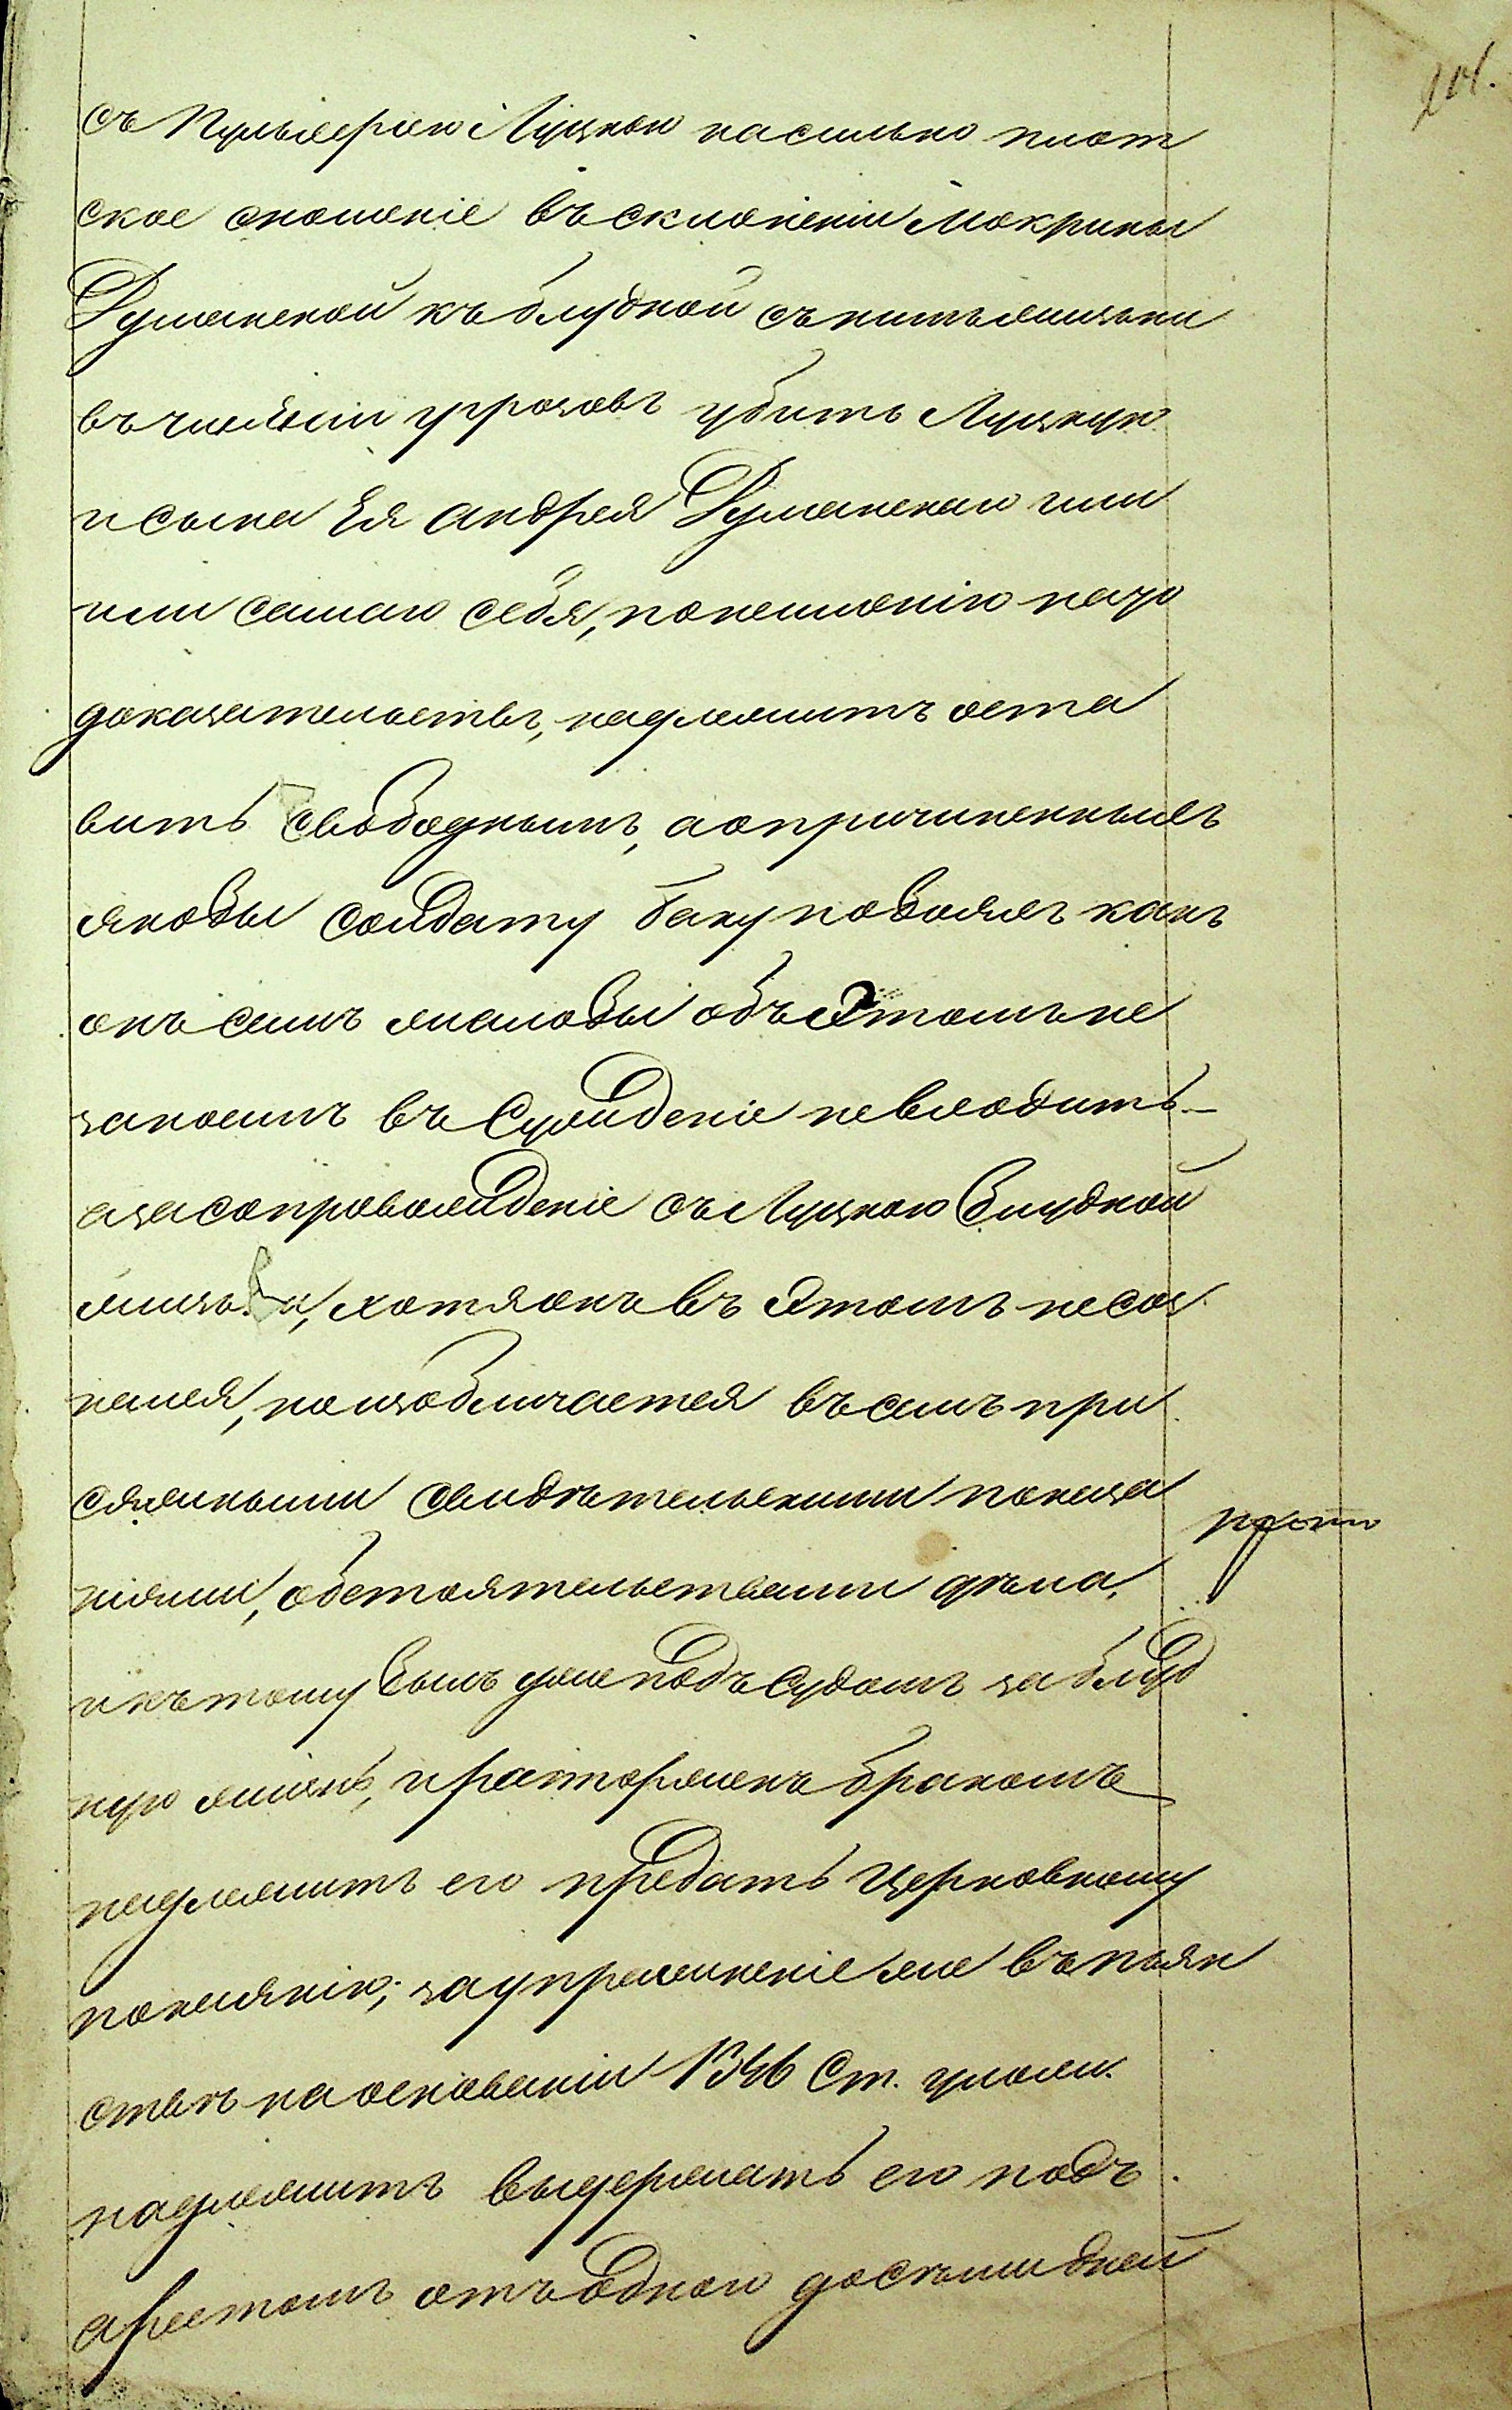 201.
съ Пульхеріею Луцкою насильно плот
ское сношеніе въ склоненіи Мокрины
Думанской къ блудной съ нитъ жизни
въ чиненіи угрозовъ убить Луцкую
и сына Ея Андрея Думанскаго или
или самаго себя, по неимѣнію на то
доказательствъ, надлежитъ оста
вить свободнымъ, а о причиненныхъ
якобы солдату побояхъ какъ
онъ самъ жалобы объ Этомъ не
заноситъ въ Сужденіе не входить.
а за сопровожденіе съ Луцкою блудной
жизни, хотя онъ въ Этомъ не соз
нался, но изобличается въ семъ при
сяжными свидѣтельскими показа
ніями, обстоятельствами дѣла,
и къ тому былъ уже подъ Судомъ за блуд
ную жизнь, и расторженъ бракомъ
надлежитъ его предать Церковному
покаянію; за упражненіе же въ пьян
ствѣ на основаніи 1346 Ст. улож.
надлежитъ выдержать его подъ
арестомъ отъ одного до семи дней